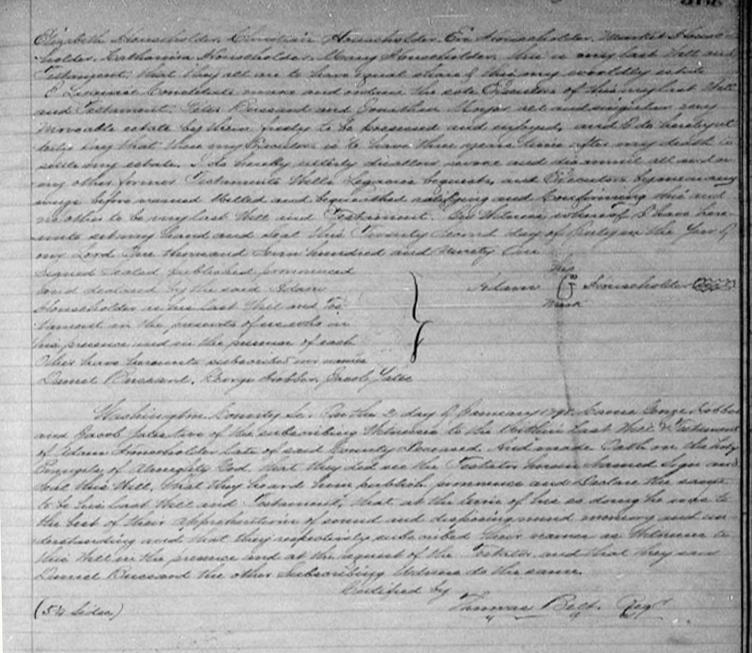 Elizabeth Householder, Christian Householder, Householder, House
holder, Catharina Householder, Mary Householder, this is my last Will and
Testament, that they all are to have equal share of this my worldly estate
I Constitute make and ordain the sole Executors of this my last Will
and Testament, Peter and Jonathan all and singular
Moveable estate by them freely to be possessed and enjoyed, and I do hereby
that these my Executors is to have three years time after my death to
settle my estate. I do hereby utterly disallow revoke and disannul all and
my other former Testaments Wills Legacies bequests, and Executors by me in any
ways before named Willed and bequeathed ratifying and Confirming this and
no other to be my last Will and Testament. In Witness whereof I have here
unto set my hand and seal this Twenty Second day of in the Year of
my Lord One thousand Seven hundred and Ninety One
Signed Sealed published pronounced
and declared by the said Adam
Householder as his last Will and Tes
tament in the presents of us who in
his presence and in the presence of each
other have hereunto subscribed our names
Daniel George Jacob
Adam his mark Householder
Washington County Sc. On the 2 day of January Came George
and Jacob two of the subscribing Witnesses to the Within Last Will & Testament
of Adam Householder Late of said County Deceased. And made Oath on the Holy
Evangely of Almighty God, that they did see the Testator therein Named Sign and
Seal this Will, that they heard him publish, pronounce and Declare the same
to be his Last Will and Testament, that at the time of his so doing he was to
the best of their Apprehensions of sound and disposing mind memory and un
derstanding and that they respectively subscribed their names as Witnesses to
this Will in the presence and at the request of the Testator, and that they saw
Daniel the other Subscribing Witness do the same.
Certified by
Thomas Belt. Regr
(54 Sides)